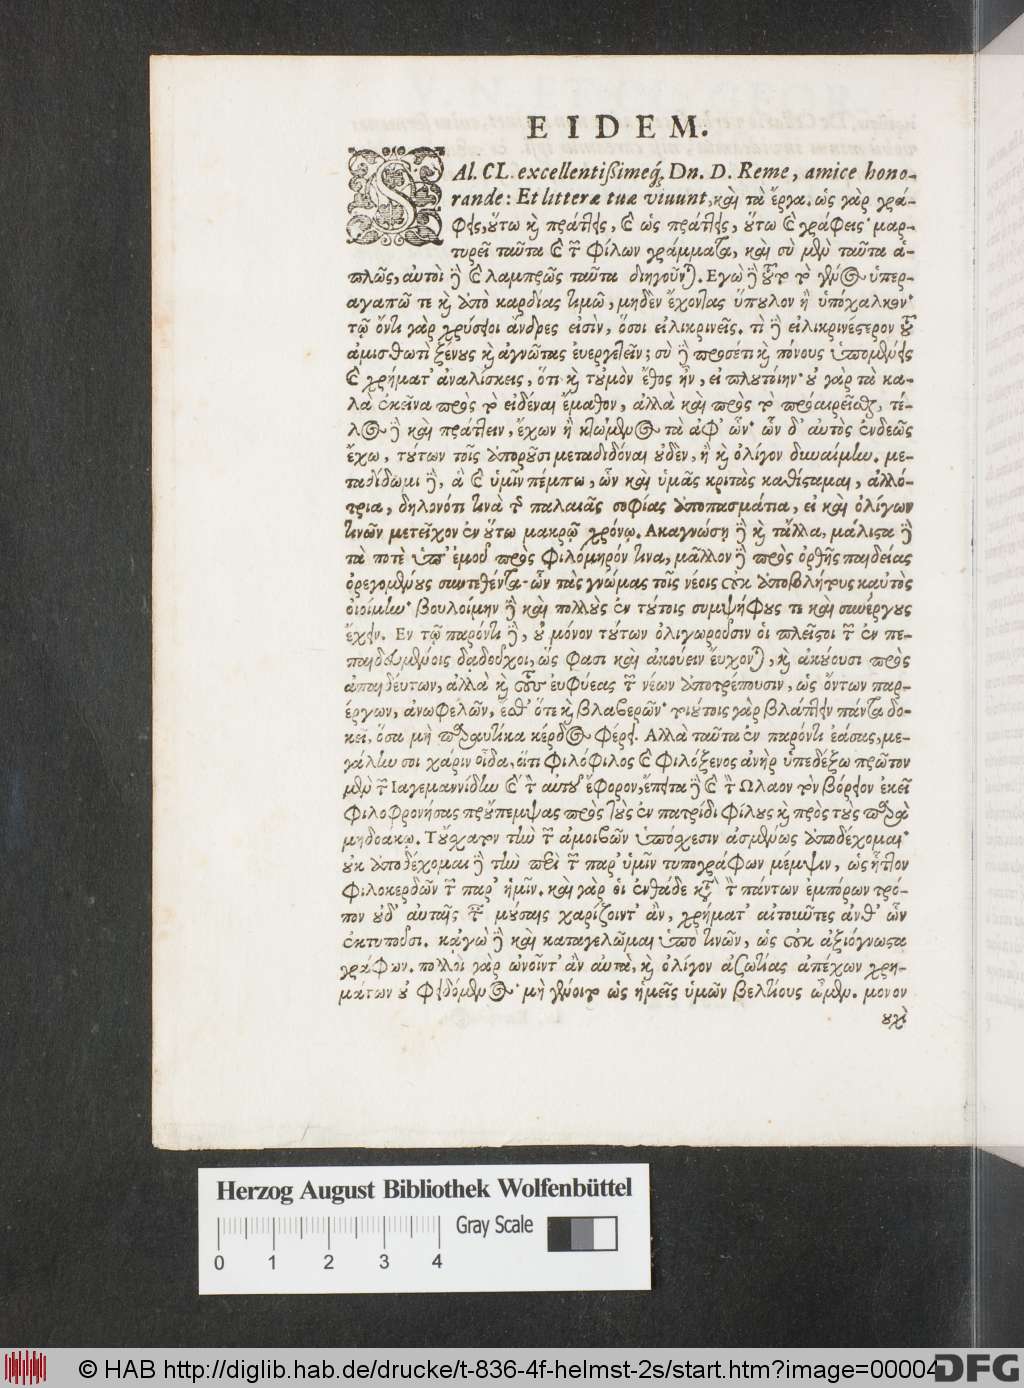 EIDEM.
SAl. CL. excellentißimeq́. Dn. D. Reme, amice hono-
rande: Et litteræ tuæ viuunt, καὶ τὰ ἔργα. ὡς γὰρ γρά-
φεις, ὕτω κ̀ πράτlεις, ϗ ὡς πράτlεις, ὕτω ϗ γράφεις· μαρ-
τυρεῖ ταῦτα ϗ τῶν φίλων γράμματα, καὶ σὺ μὲν ταῦτα ἁ-
πλῶς, αὐτοὶ ἢ ϗ λαμπρῶς ταῦτα διηγοῦνται. Εγὼ ὑπερ-
αγαπῶ τε κ̀ ἀπὸ καρδίας τιμῶ, μηδὲν ἔχοντας ὕπουλον ἢ ὑπόχαλκον·
τῷ ὄντι γὰρ χρύσειοι ἄνδρες εἰσὶν, ὅσοι εἰλικρινεῖς. τί δὲ εἰλικρινέστερον τοῦ
ἀμισθωτὶ ξένους κ̀ ἀγνῶτας ἐυεργετεῖν; σὺ δὲ προσέτι κ̀ πόνους ὑπομένεις
ϗ χρήματ' ἀναλίσκεις, ὅτι κ̀ τοὐμὸν ἔθος ἦν, εἰ πλουτοίην· οὐ γὰρ τὰ κα-
λὰ ἐκεῖνα πρὸς τὸ εἰδέναι ἔμαθον, ἀλλὰ καὶ πρὸς τὸ προαιρεῖσθαι, τέ-
λος δὲ καὶ πράτlειν, ἔχων ἢ κτώμενος τὰ ἀφ' ὧν· ὧν δ' αὐτὸς ἐνδεῶς
ἔχω, τούτων τοῖς ἀποροῦσι μεταδιδόναι οὐδὲν, ἢ κ̀ ὀλίγον δυναίμην. με-
ταδίδωμι δὲ, ἃ ϗ ὑμῖν πέμπω, ὧν καὶ ὑμᾶς κριτὰς καθίσταμαι, ἀλλό-
τρια, δηλονότι τινὰ τῆς παλαιᾶς σοφίας ἀποσπασμάτια, εἰ καὶ ὀλίγων
τινῶν μετεῖχον ἐν οὕτω μακρῷ χρόνῳ. Αναγνώσῃ δὲ κ̀ τἄλλα, μάλιστα δὲ
τὰ ποτὲ ὑπ' ἐμοῦ πρὸς φιλόμηρόν τινα, μᾶλλον δὲ πρὸς ὀρθῆς παιδείας
ὀρεγομένους συντεθέντα· ὧν τὰς γνώμας τοῖς νέοις οὐκ ἀποβλήτους καὐτὸς
οἰοίμην· βουλοίμην δὲ καὶ πολλοὺς ἐν τούτοις συμψήφους τε καὶ συνέργους
ἔχειν. Εν τῷ παρόντι δὲ, οὐ μόνον τούτων ὀλιγωροῦσιν οἱ πλεῖστοι τῶν ἐν πε-
παιδευμένοις δᾳδοῦχοι, ὥς φασι καὶ ἀκούειν εὔχονται, κ̀ ἀκούουσι πρὸς
ἀπαιδεύτων, ἀλλὰ κ̀ τοὺς ἐυφύεας τῶν νέων ἀποτρέπουσιν, ὡς ὄντων παρ-
έργων, ἀνωφελῶν, ἔσθ' ὅτε κ̀ βλαβερῶν· τοιούτοις γὰρ βλάπτειν πάντα δο-
κεῖ, ὅσα μὴ παραυτίκα κέρδος φέρει. Αλλὰ ταῦτα ἐν παρόντι ἐάσας, με-
γάλην σοι χάριν οἶδα, ὅτι φιλόφιλος ϗ φιλόξενος ἀνὴρ ὑπεδέξω πρῶτον
μὲν τῶν Ιαγεμαννίδην ϗ τὸν αὐτοῦ ἔφορον, ἔπειτα δὲ ϗ τὸν Ωλαον τὸν βόρειον ἐκεῖ
φιλοφρονήσας προὔπεμψας πρὸς τοὺς ἐν πατρίδι φίλους κ̀ πρὸς τοὺς παρὰ
μηδοάκῳ. Τοὔσχατον τὴν τῶν ἀμοιβῶν ὑπόσχεσιν ἀσμένως ἀποδέχομαι·
οὐκ ἀποδέχομαι δὲ τὴν περὶ τῶν παρ' ὑμῖν τυπογράφων μέμψιν, ὡς ἧττον
φιλοκερδῶν τῶν παρ' ἡμῖν. καὶ γὰρ οἱ ἐνθάδε κατὰ τὸν πάντων ἐμπόρων τρό-
πον οὐδ' αὐταῖς ταῖς μούσαις χαρίζοιντ' ἂν, χρήματ' αἰτοῦντες ἀνθ' ὧν
ἐκτυποῦσι. κἀγὼ δὲ καὶ καταγελῶμαι ὑπό τινῶν, ὡς οὐκ ἀξιόγνωστα
γράφων. πολλοὶ γὰρ ὠνοῖντ' ἂν αὐτὰ, κ̀ ὀλίγον ἀσωτίας ἀπέχων χρη-
μάτων οὐ φειδόμενος· μὴ γένοιτο ὡς ἡμεῖς ὑμῶν βελτίους ὦμεν. μόνον
οὐχὶ
Herzog August Bibliothek Wolfenbüttel
Gray Scale
0 1 2 3 4
© HAB http://diglib.hab.de/drucke/t-836-4f-helmst-2s/start.htm?image=00004
DFG